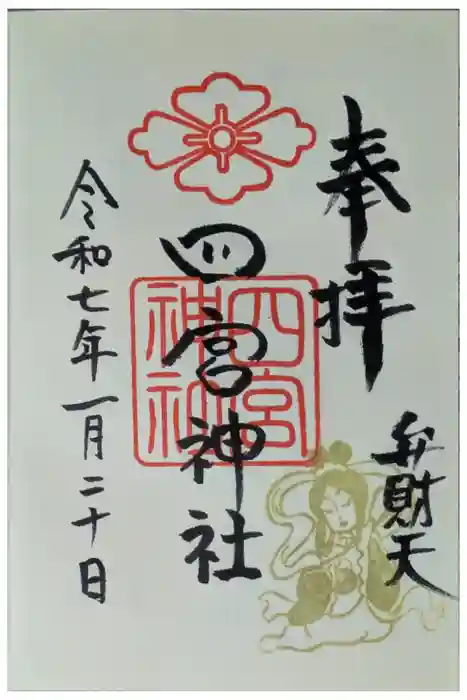 奉拝
弁財天
四宮神社
四宮
神社
令和七年一月二十日